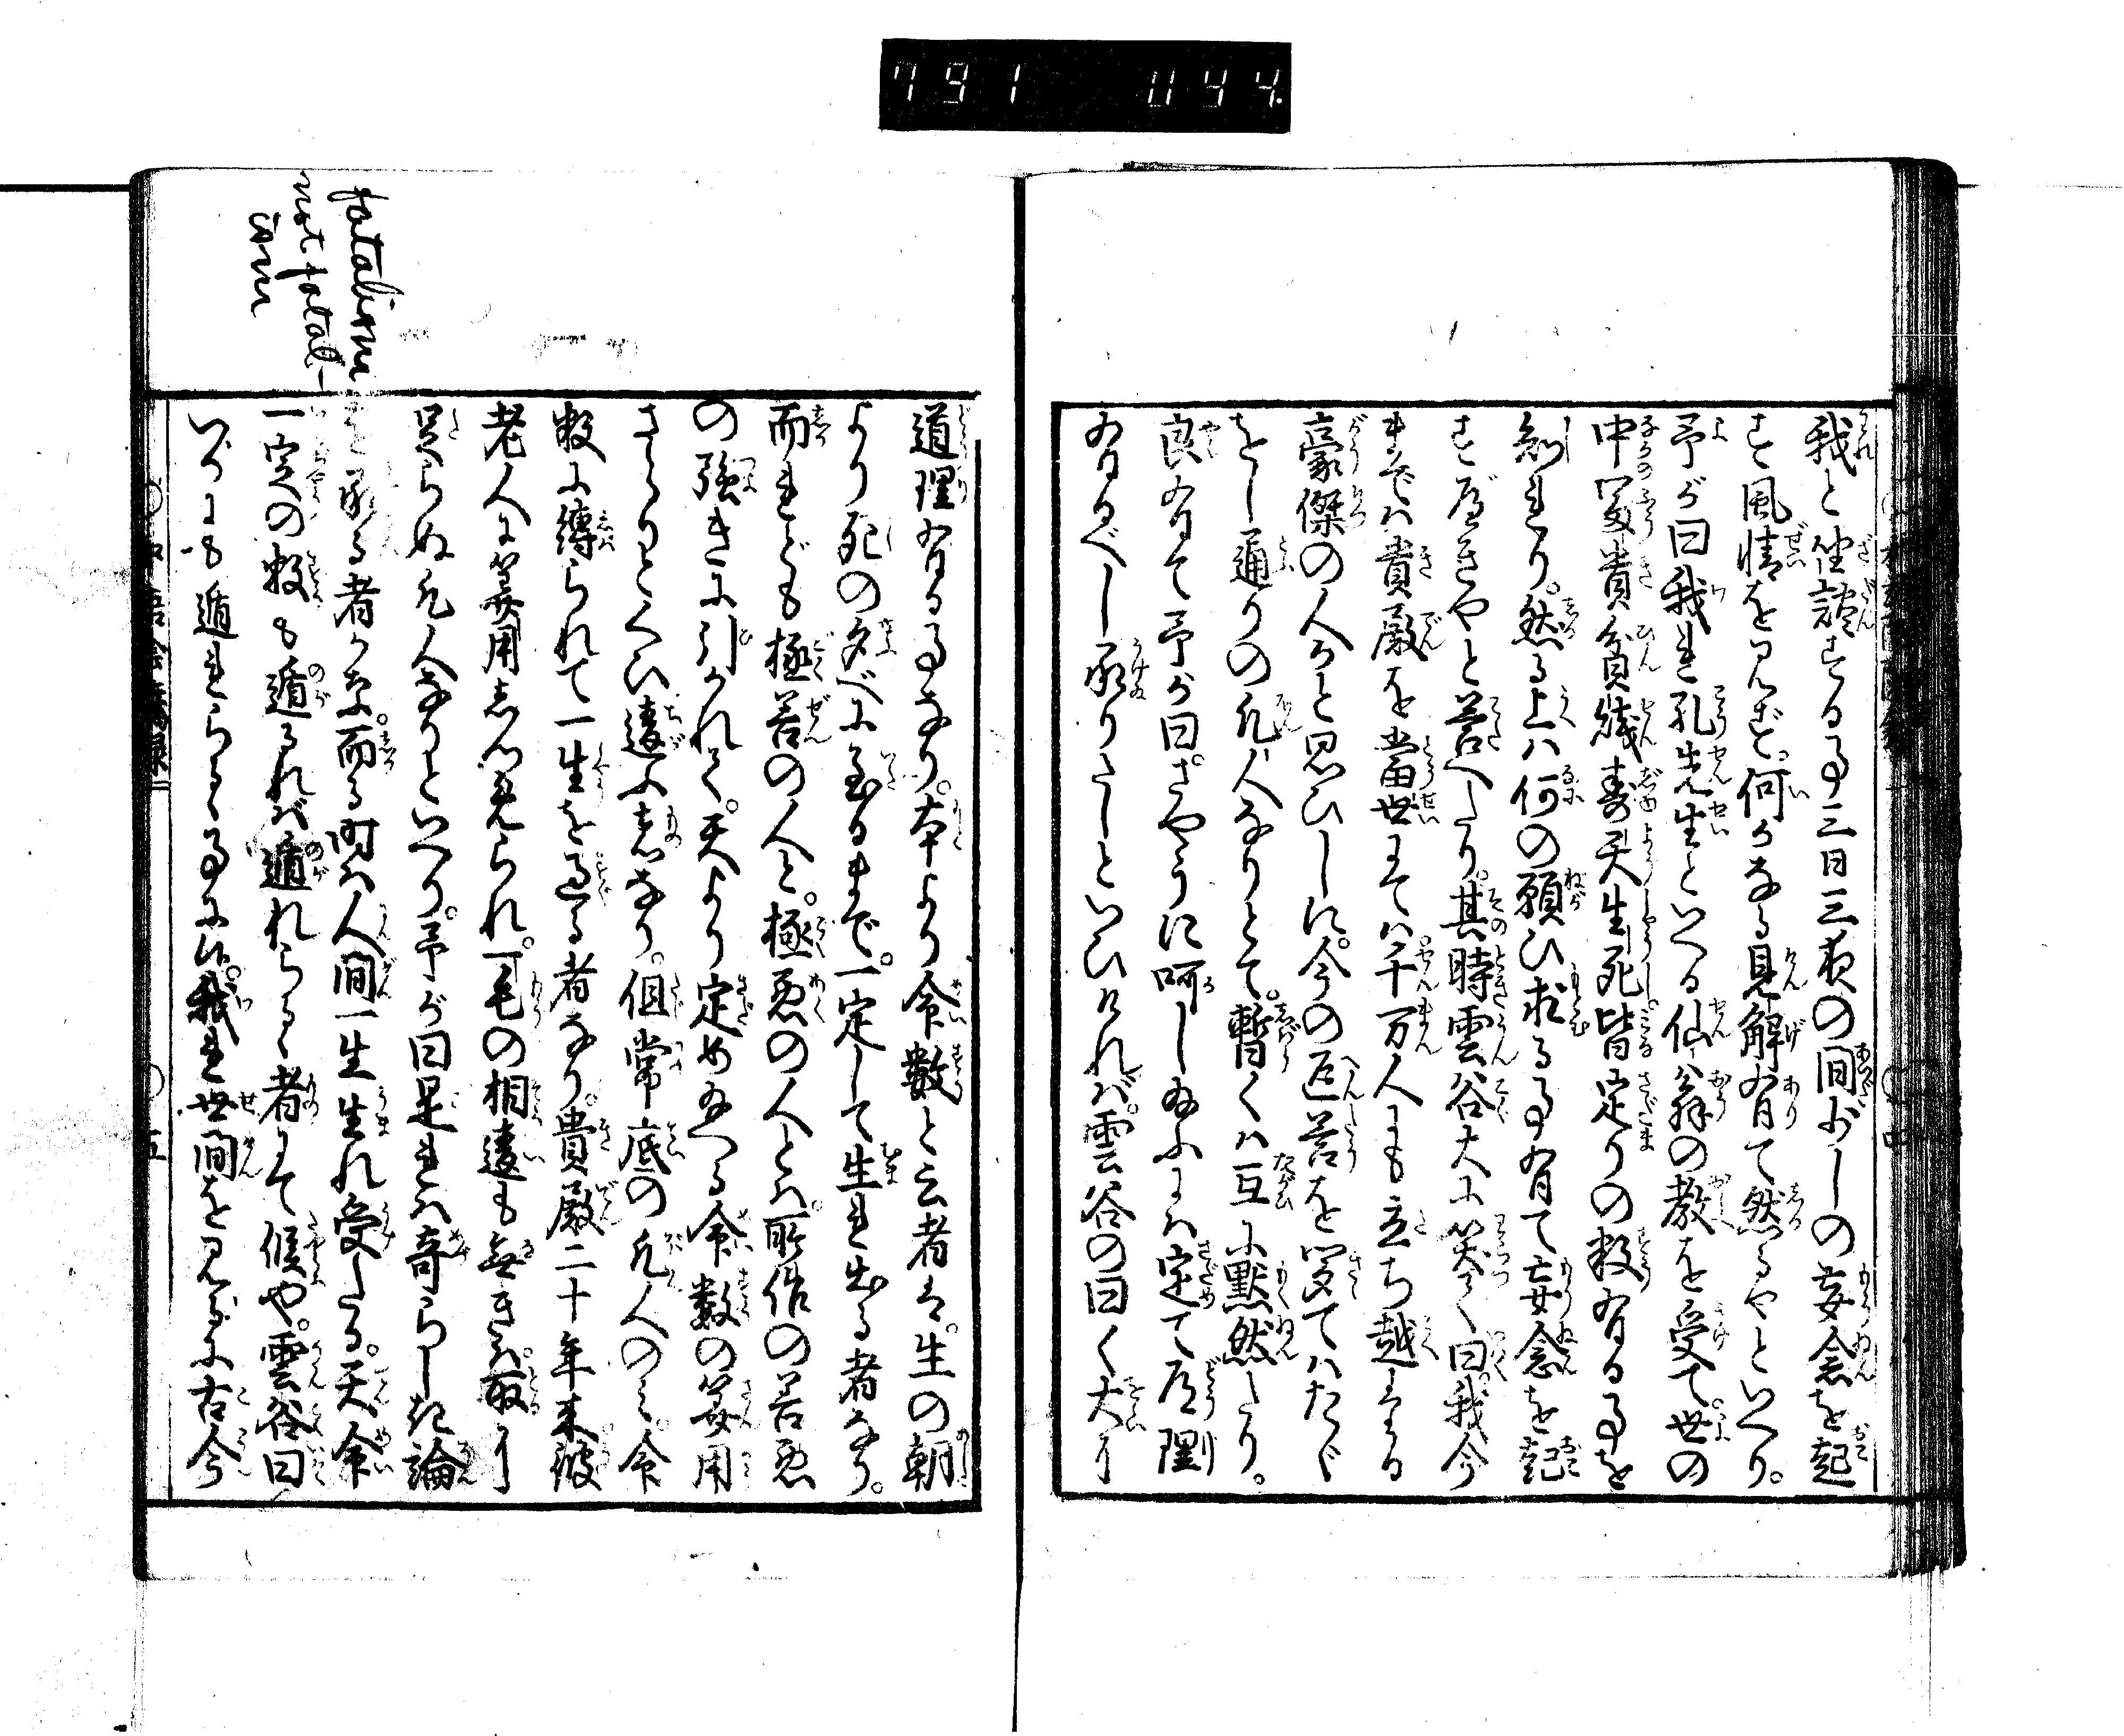 791 044
我と坐禅する事三日三夜の間少しの妄念を起
す風情を見ず。何かなる見解有て然るやといへり。
予が曰我れ孔先生といへる仙翁の教を受て。世の
中冨貴貧賤壽夭生死皆定りの数有る事を
知れり。然る上ハ何の願ひ求る事有て妄念を起
すべきやと答へたり。其時雲谷大に笑て曰。我今
まては貴殿を當世にてハ千万人にも立ち越へたる
豪傑の人かと思ひしに。今の返答を聞てハたゞ
をし通りの凡人なりとて。暫くハ互に黙然たり。
良有て予が曰。さやうに呵し給ふには定て道理
有るべし承りたしといひけれバ。雲谷の曰く大に
道理有る事なり。本より命数と云者は。生の朝
より死の夕べに至るまで。一定して生れ出る者なり。
而れども極善の人と。極悪の人とは。所作の善悪
の強きに引かれて。天より定め給へる命数の筭用
さらりとくひ違ふ者なり。但常底の凡人のミ。命
数に縛られて一生を過る者なり。貴殿二十年来彼
老人に筭用しつめられ。一毛の相違も無きは。取り
足らぬ凡人なりといへり。予が曰是れは奇らしき論
を承る者かな。而る時は人間一生生れ受たる。天命
一定の数も遁るれバ遁れらるゝ者にて候や。雲谷曰
いかにも遁れらるゝ事に候。我れ世間を見るに古今
五
fatalism
not fatal-
ism